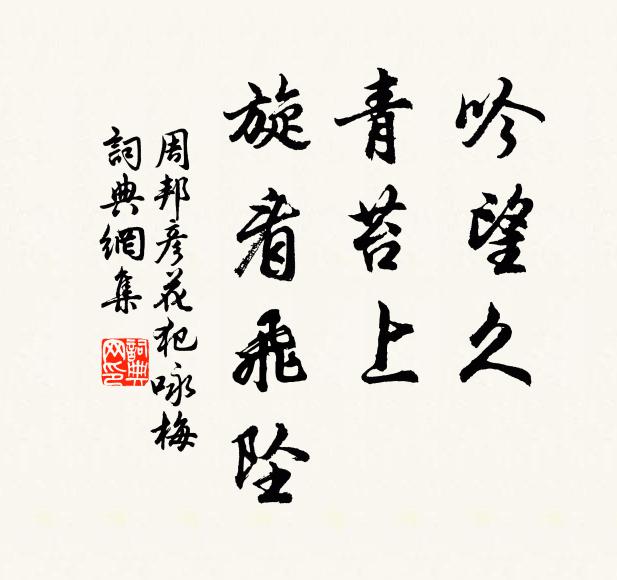 吟望久
青苔上
旋看飛墜
周邦彥花犯咏梅
詞典網集
詞典
网印